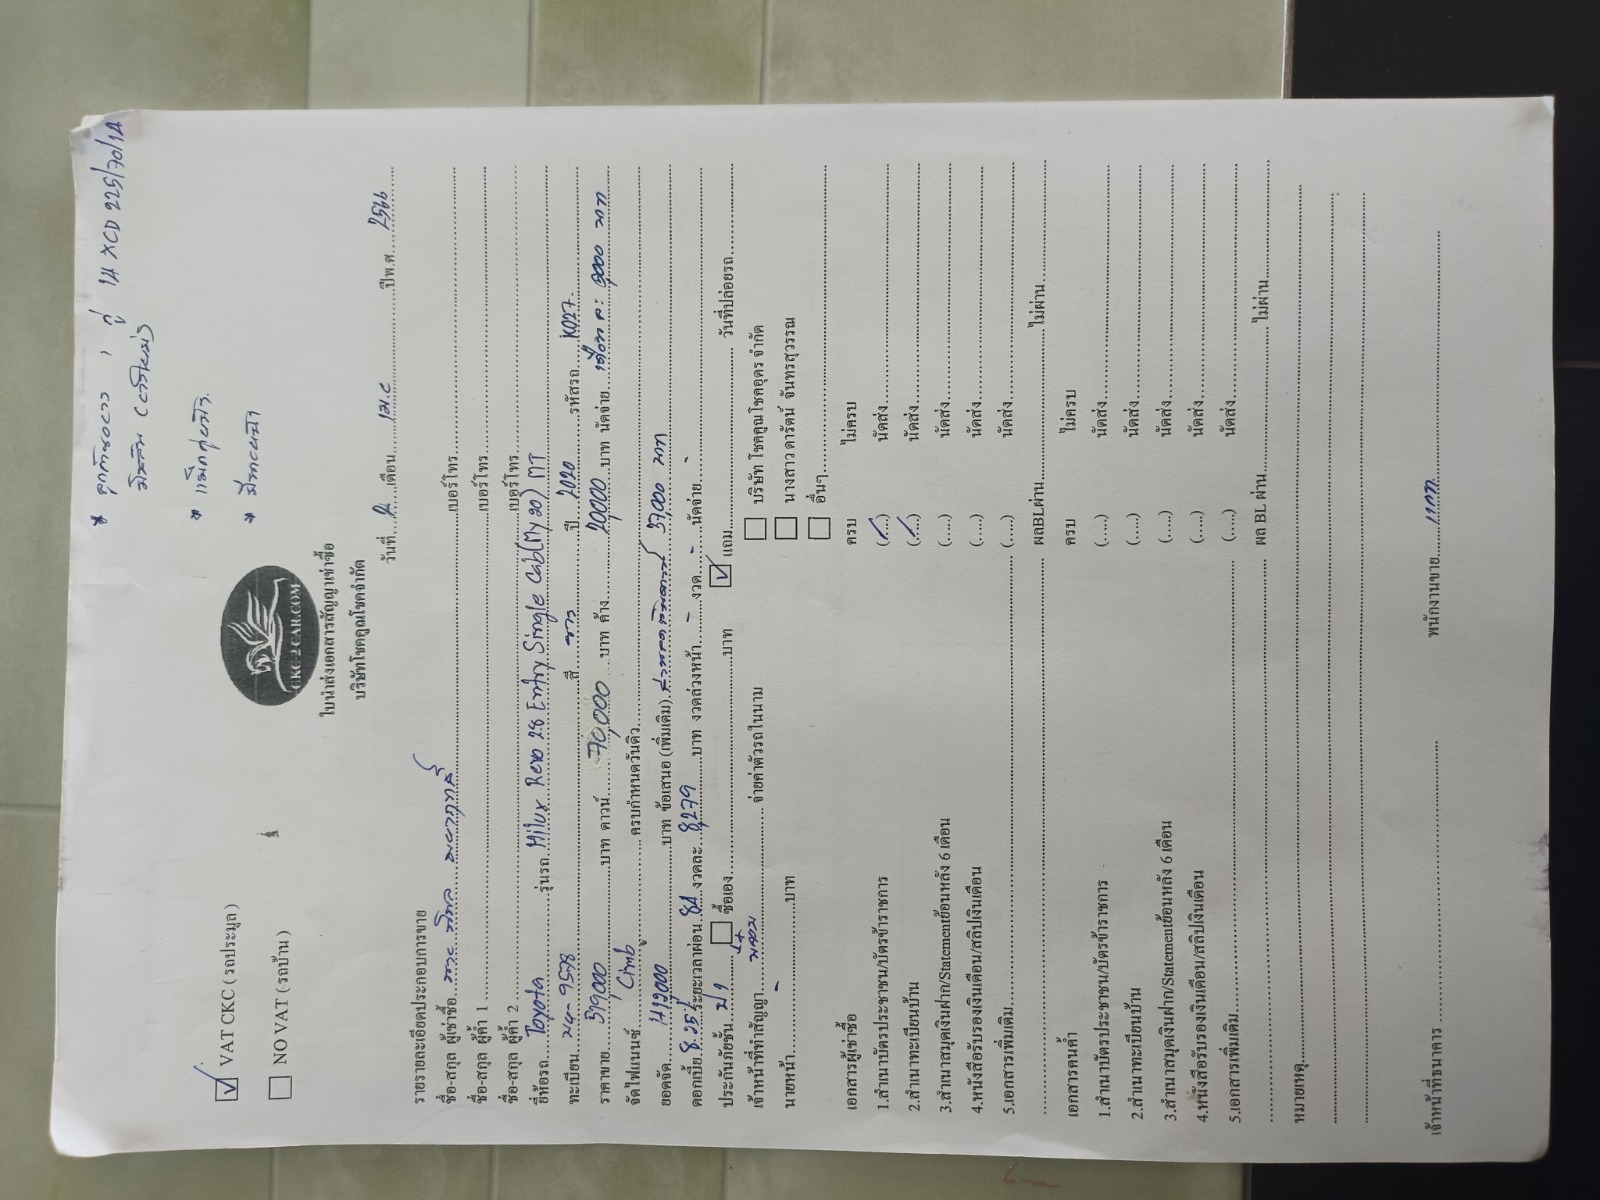 * ลูกค้าขอยาง 1 คู่ 14 XCD 225/70/14
(ยางใหม่)
*
*
☑ VAT CKC ( รถประมูล )
☐ NO VAT ( รถบ้าน )
CKC 2 CAR.COM
ใบนำส่งเอกสารสัญญาเช่าซื้อ
บริษัทโชคคูณโชคจำกัด
วันที่ 2 เดือน เม.ย ปีพ.ศ. 2566
รายรายละเอียดประกอบการขาย
ชื่อ-สกุล ผู้เช่าซื้อ เบอร์โทร
ชื่อ-สกุล ผู้ค้ำ 1 เบอร์โทร
ชื่อ-สกุล ผู้ค้ำ 2 เบอร์โทร
ยี่ห้อรถ Toyota รุ่นรถ Hilux Revo 2.8 Entry Single Cab (My 20) MT
ทะเบียน 9578 สี ขาว ปี 2020 รหัสรถ K027
ราคาขาย 519000 บาท ดาวน์ 70,000 บาท ค้าง 20000 บาท นัดจ่าย เดือนละ 5000 บาท
จัดไฟแนนซ์ Cimb ครบกำหนดวันคิว
ยอดจัด 449000 บาท ข้อเสนอ (เพิ่มเติม) ส่วนลดเงินดาวน์ 37,000 บาท
ดอกเบี้ย ระยะเวลาผ่อน 84 งวดละ 8,279 บาท งวดล่วงหน้า - งวด - นัดจ่าย -
ประกันภัยชั้น ป1 ☐ ซื้อเอง บาท ☑ แถม วันที่ปล่อยรถ
เจ้าหน้าที่ทำสัญญา จ่ายค่าตัวรถในนาม ☐ บริษัท โชคคูณโชคอุดร จำกัด
นายหน้า - บาท ☐ นางสาว ดารัตน์ จันทรสุวรรณ
☐ อื่นๆ
เอกสารผู้เช่าซื้อ ครบ ไม่ครบ
1.สำเนาบัตรประชาชน/บัตรข้าราชการ (✓) นัดส่ง
2.สำเนาทะเบียนบ้าน (✓) นัดส่ง
3.สำเนาสมุดเงินฝาก/Statementย้อนหลัง 6 เดือน (....) นัดส่ง
4.หนังสือรับรองเงินเดือน/สลิปเงินเดือน (....) นัดส่ง
5.เอกสารเพิ่มเติม (....) นัดส่ง
ผลBLผ่าน ไม่ผ่าน
เอกสารคนค้ำ ครบ ไม่ครบ
1.สำเนาบัตรประชาชน/บัตรข้าราชการ (....) นัดส่ง
2.สำเนาทะเบียนบ้าน (....) นัดส่ง
3.สำเนาสมุดเงินฝาก/Statementย้อนหลัง 6 เดือน (....) นัดส่ง
4.หนังสือรับรองเงินเดือน/สลิปเงินเดือน (....) นัดส่ง
5.เอกสารเพิ่มเติม (....) นัดส่ง
ผล BL ผ่าน ไม่ผ่าน
หมายเหตุ
เจ้าหน้าที่ธนาคาร พนักงานขาย